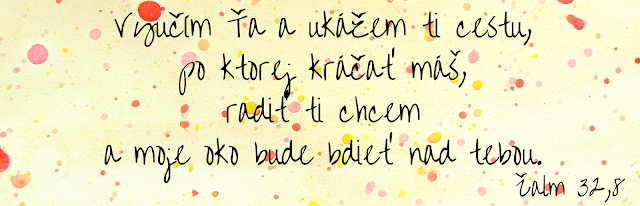 Vyučím Ťa a ukážem ti cestu,
po ktorej kráčať máš,
radiť ti chcem
a moje oko bude bdieť nad tebou.
Žalm 32,8